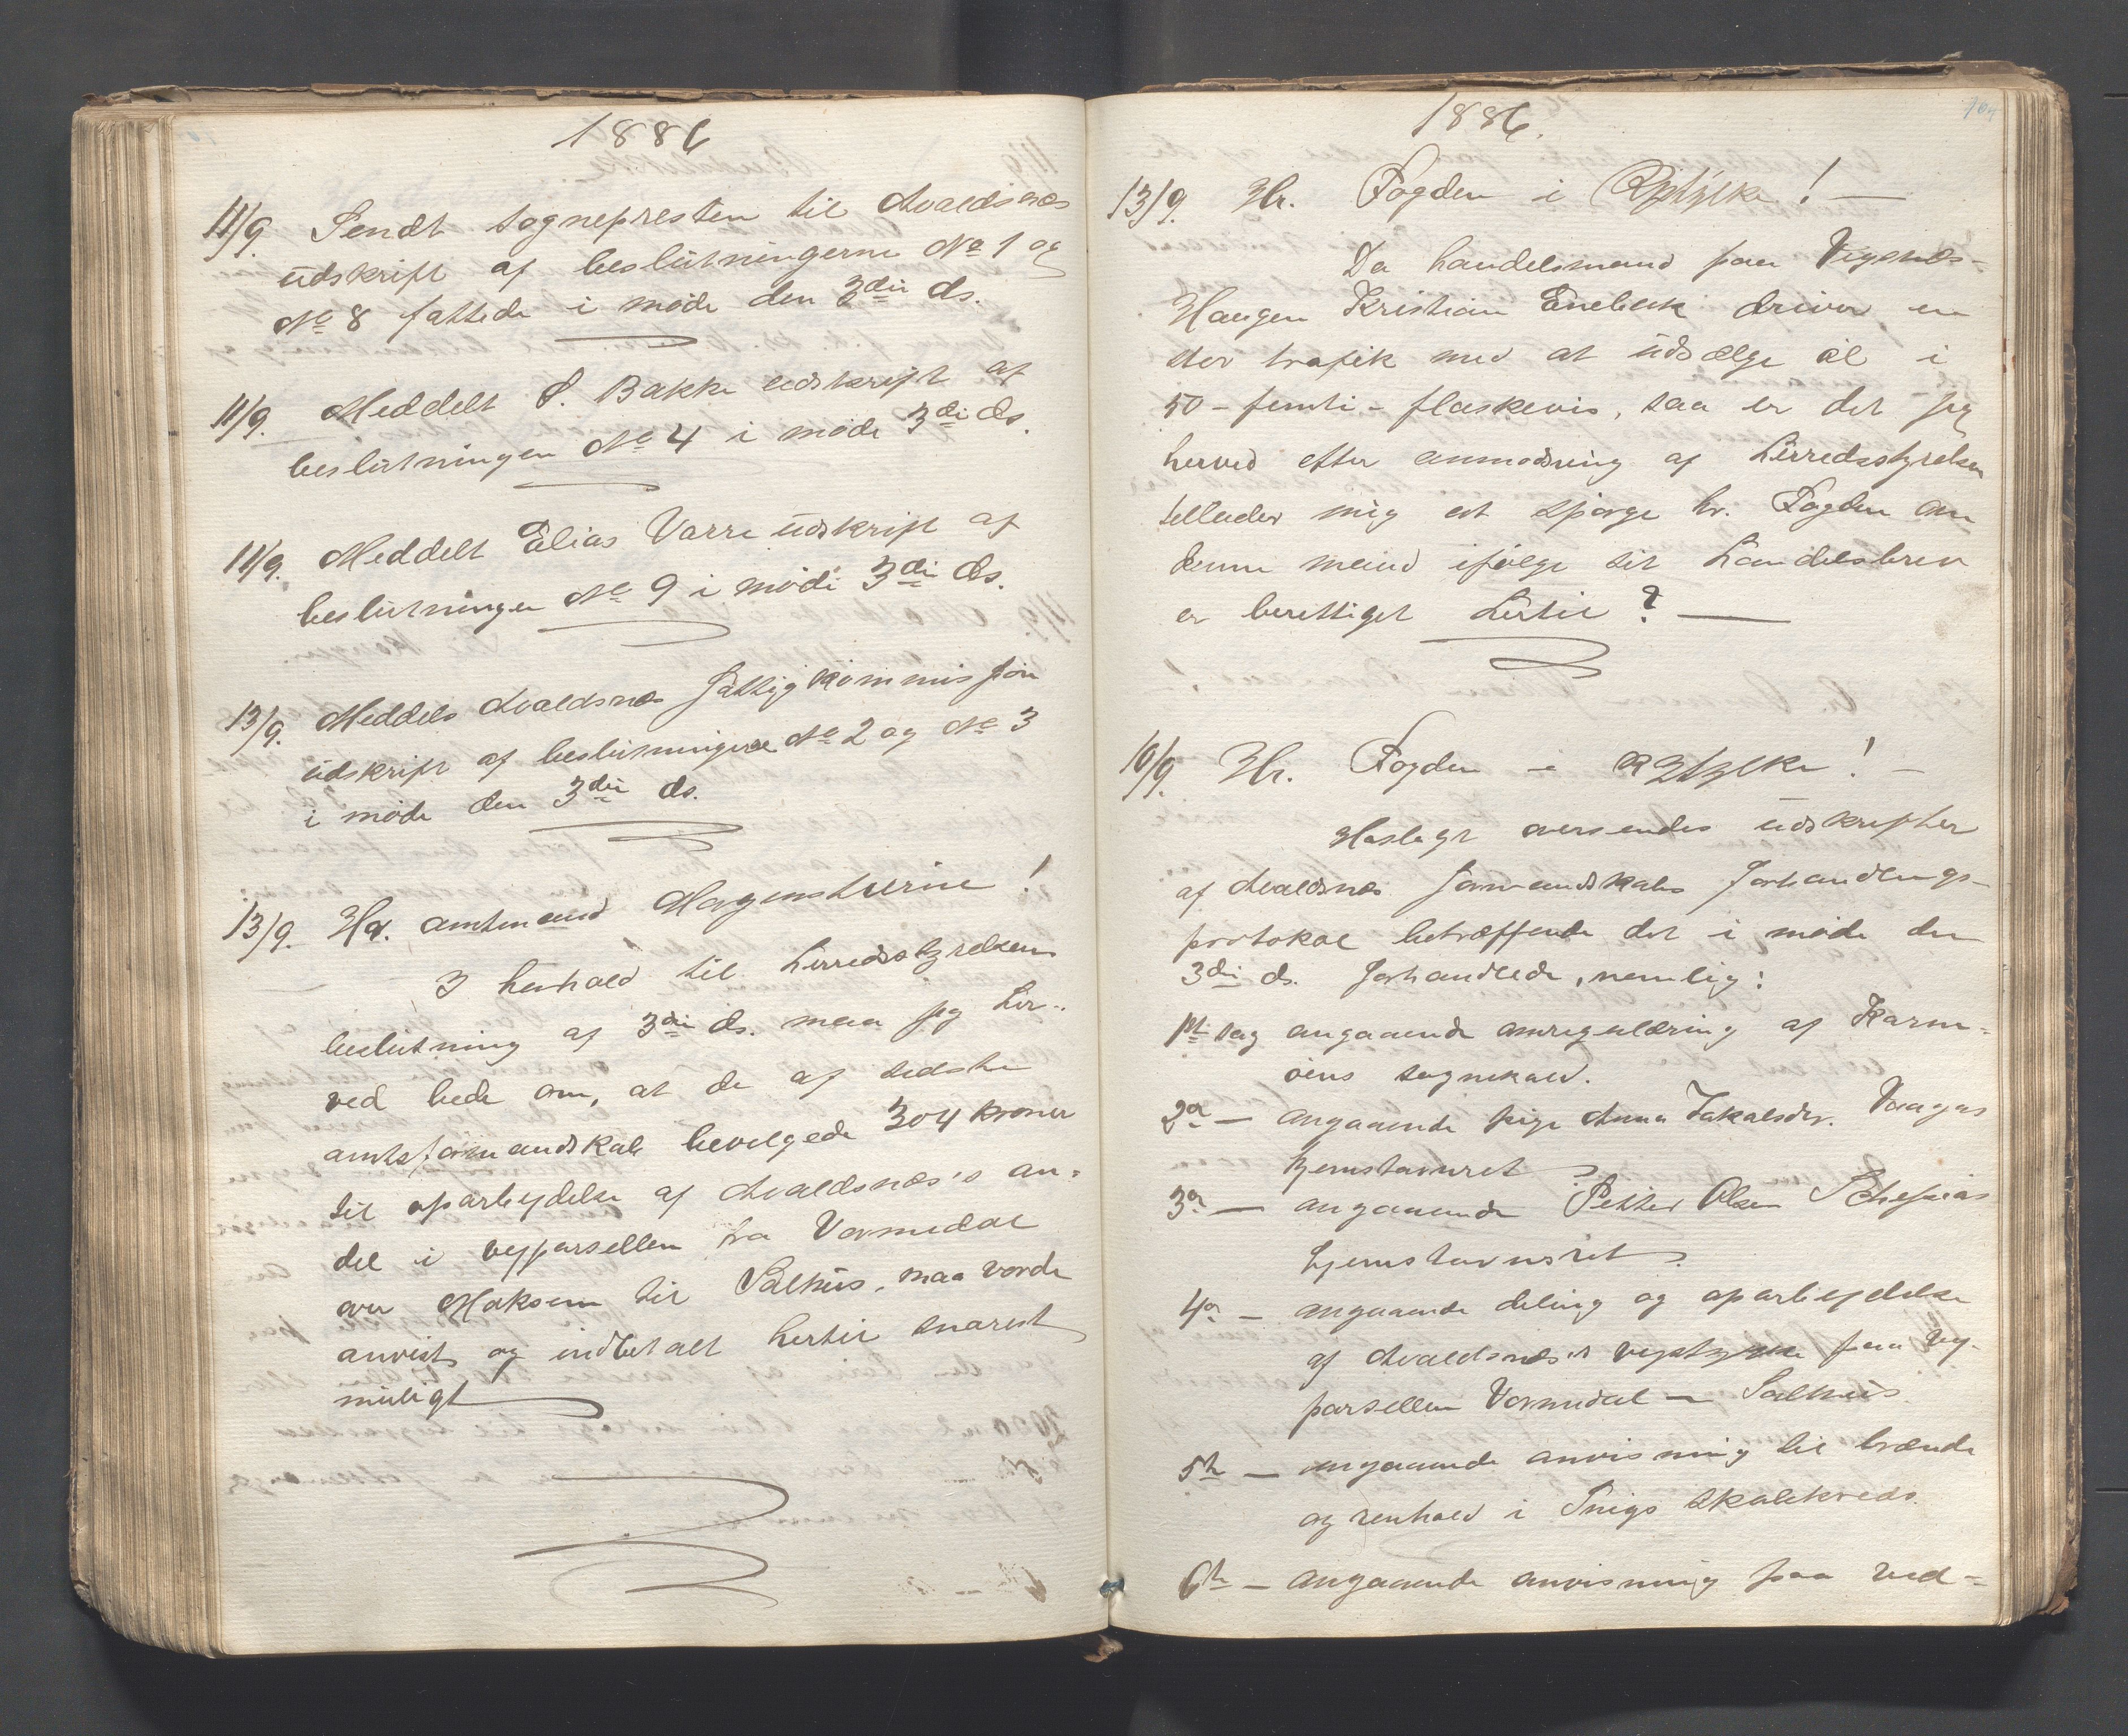 1886
11/9. Sendt sognepresten til Avaldsnæs
udskrift af beslutningerne No 1 og
No 8 fattede i møde den 3die ds.
11/9. Meddelt S. Bakke udskrift af
beslutningen No 4 i møde 3die ds.
11/9. Meddelt Elias Varre udskrift af
beslutningen No 9 i møde 3die ds.
13/9. Meddels Avaldsnæs fattigkommissjon
udskrift af beslutningerne No 2 og No 3
i møde den 3die ds.
13/9. Hr. amtmand Morgenstierne!
I henhold til herredsstyrelsens
beslutning af 3die ds. maa jeg her-
ved bede om, at de af sidste
amtsformandskab bevilgede 304 kroner
til oparbeydelse af Avaldsnæs's an-
del i veyparsellen fra Vormedal
over Moksem til Salhus, maa vorde
anvist og indbetalt hertil snarest
muligt
1886.
104
13/9. Hr. Fogden i Ryfylke! —
Da handelsmand paa Vigsnæs-
Haugen Kristian Enebak driver en
stor trafik med at udsælge øl i
50 - femti - flaskevis, saa er det jeg
herved efter anmodning af herredsstyrelsen
tillader mig at spørge hr. Fogden om
denne mand ifølge sit handelsbrev
er berettiget hertil? —
16/9. Hr. Fogden i Ryfylke! —
Hoslagt oversendes udskrifter
af Avaldsnæs formandskabs forhandlings-
protokol betræffende det i møde den
3die ds. forhandlede, nemlig:
1ste sag angaaende omregulæring af Karm-
øens sognekald.
2en — angaaende pige Anna Jakobsdtr. Vaagas
hjemstavnret
3e — angaaende Petter Olsen
hjemstavnsret.
4e — angaaende deling og oparbeydelse
af Avaldsnæs's veystykke paa vey-
parsellen Vormedal — Salhus
5te — angaaende anvisning til brænde
og renhold i Sniges skolekreds.
6te — angaaende anvisning paa ved-